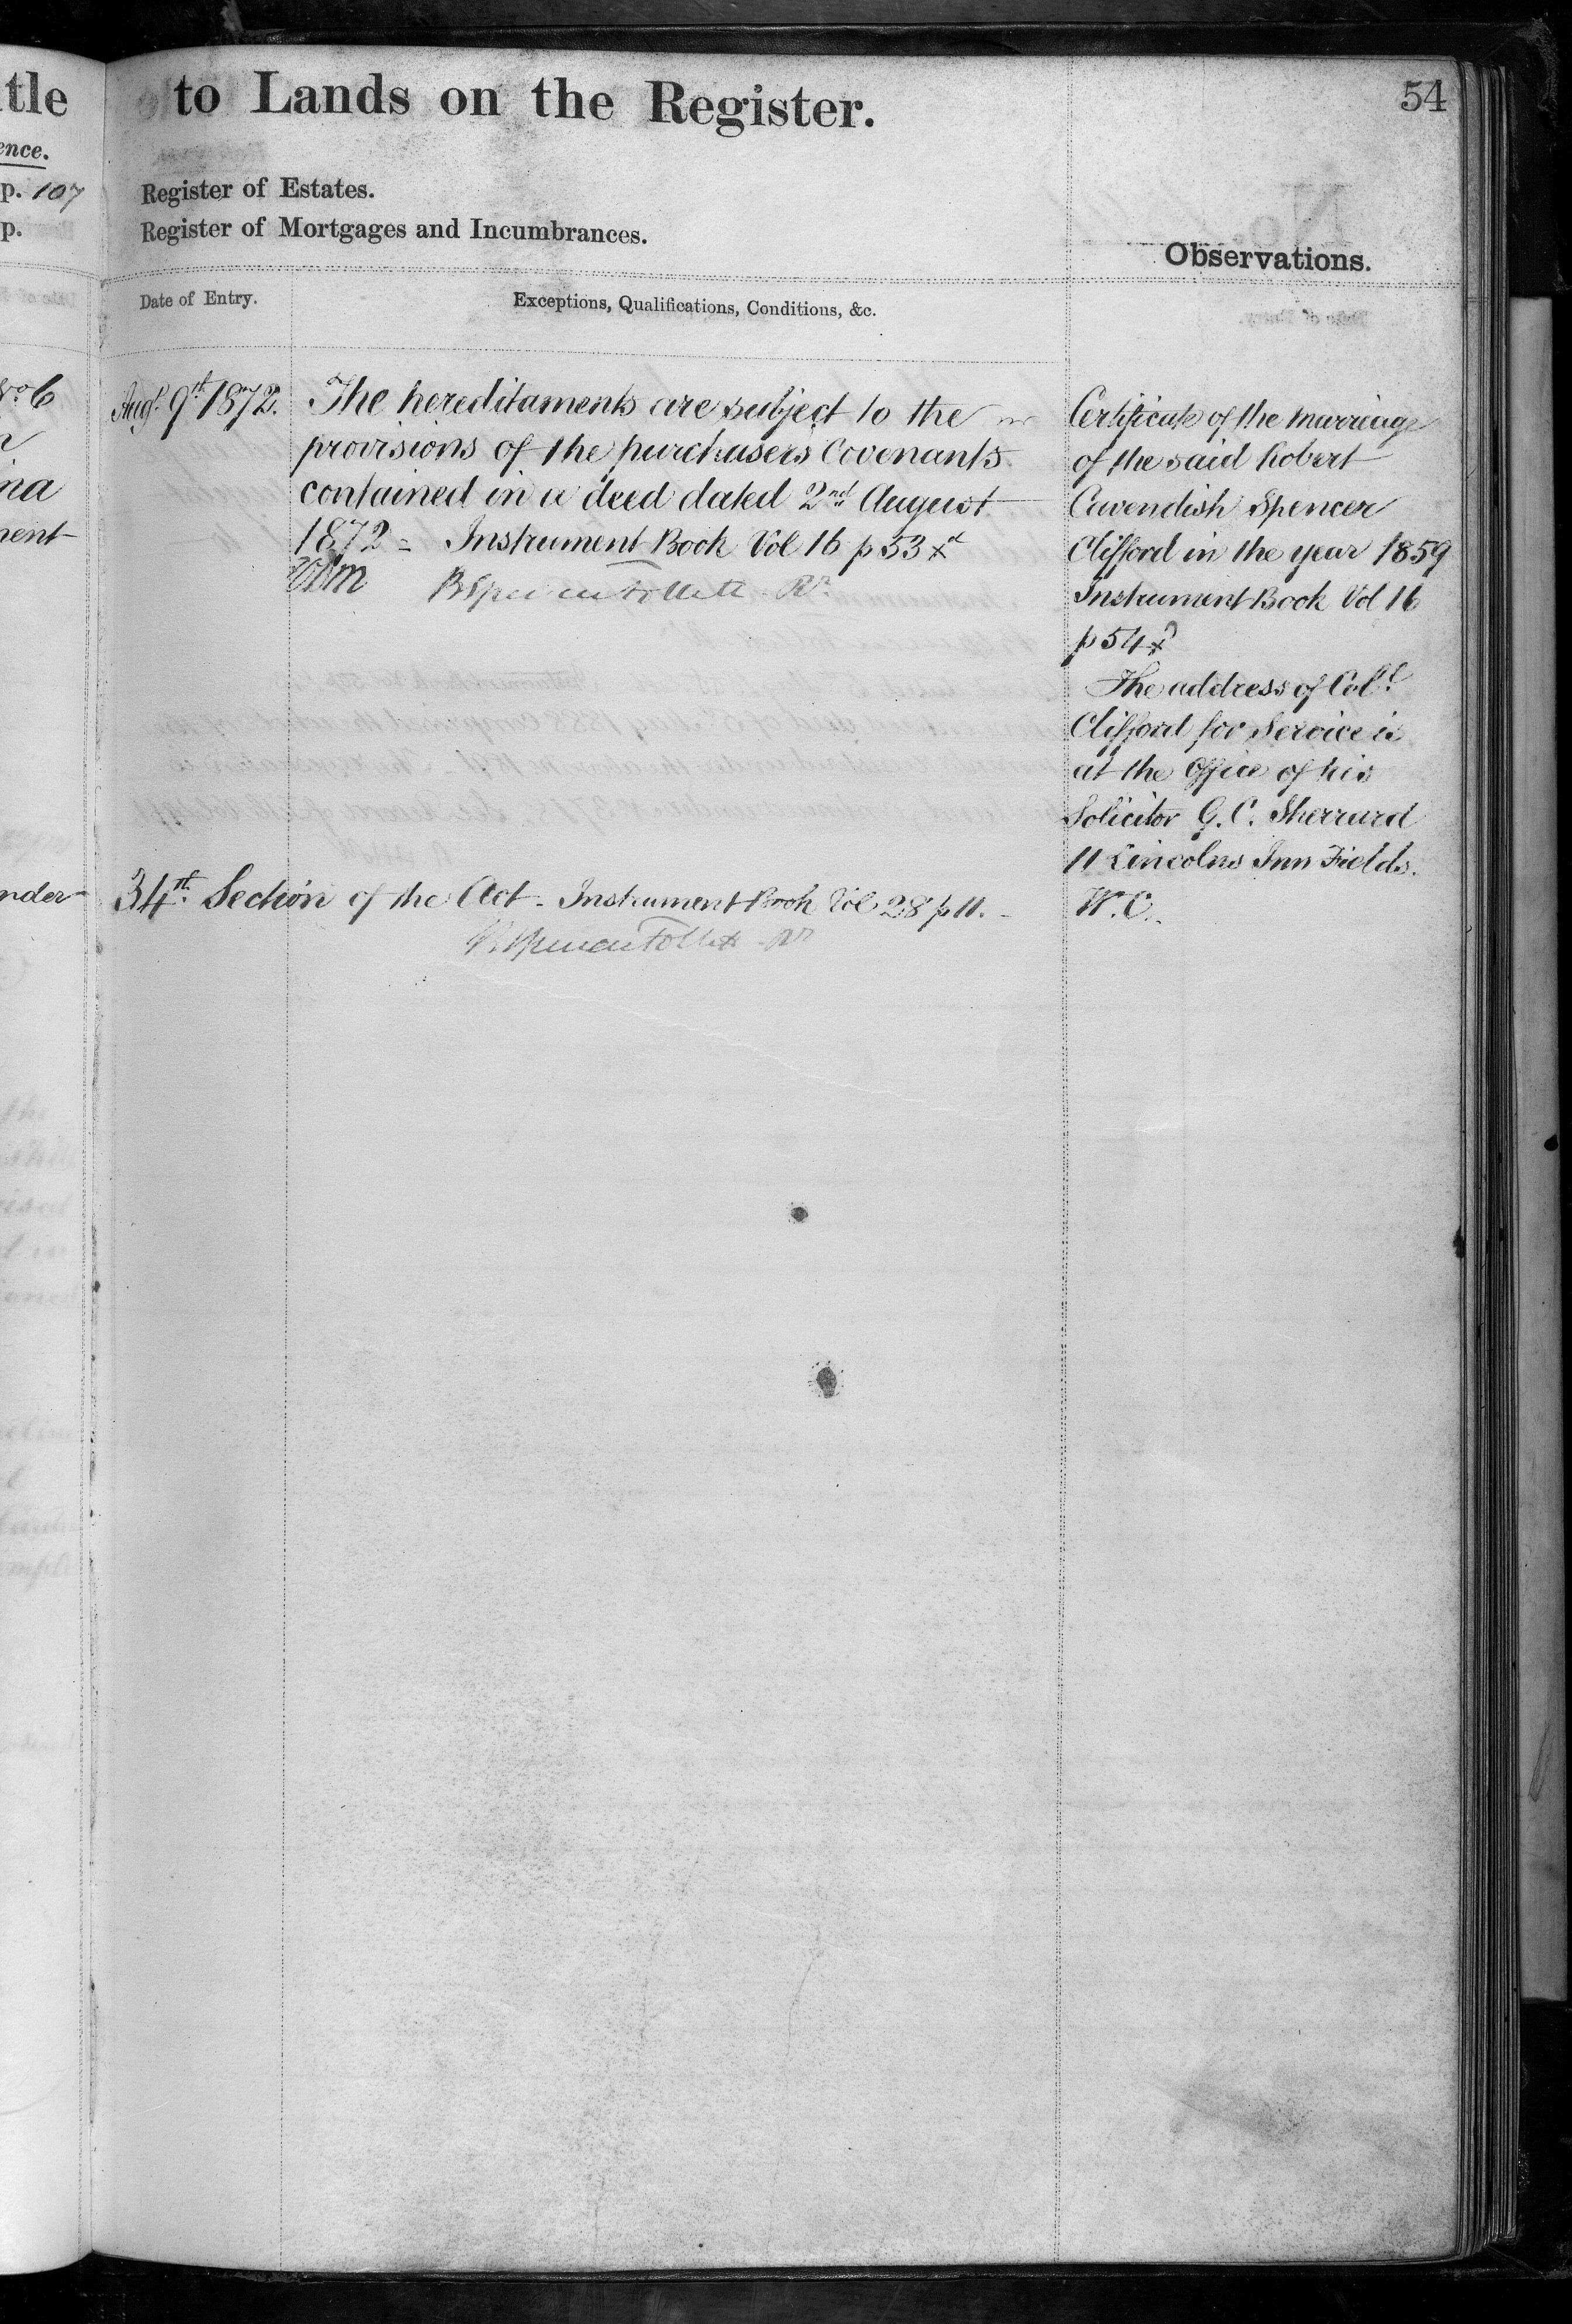 tle
ence.
p. 107
p.
No 6
na
ment
nder
to Lands on the Register.
54
Register of Estates.
Register of Mortgages and Incumbrances.
Observations.
Date of Entry.
Exceptions, Qualifications, Conditions, &c.
Augt. 9th 1872.
The hereditaments are subject to the
provisions of the purchasers Covenants
contained in a deed dated 2nd August
1872 = Instrument Book Vol 16 p 53 x
B Spencer Follett Rr
34th Section of the Act - Instrument Book Vol 28 p 11.
B Spencer Follett Rr
Certificate of the Marriage
of the said Robert
Cavendish Spencer
Clifford in the year 1859
Instrument Book Vol 16
p 54 x
The address of Coll.
Clifford for Service is
at the Office of his
Solicitor G. C. Sherrard
11 Lincolns Inn Fields.
W. C.